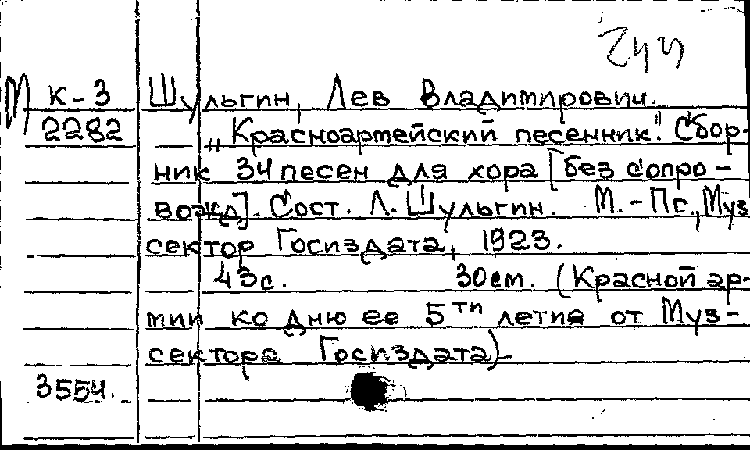 К-3 Шульгин, Лев Владимирович.
2282 „Красноармейский песенник". Сбор-
ник 34 песен для хора [без сопро-
вожд]. Сост. Л. Шульгин. М.-Пг., Муз
сектор Госиздата, 1923.
43с. 30см. (Красной ар-
мии ко дню ее 5ти летия от Муз-
сектора Госиздата)
3554.